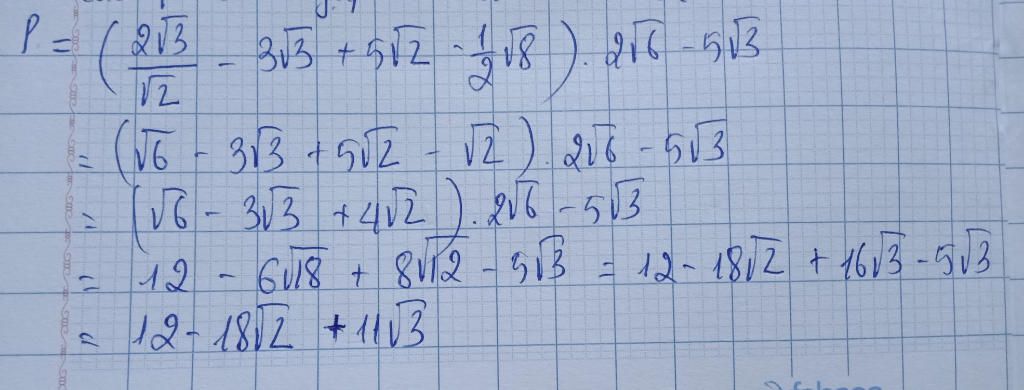 P = (2√3/√2 - 3√3 + 5√2 - 1/2 √8) . 2√6 - 5√3
= (√6 - 3√3 + 5√2 - √2) . 2√6 - 5√3
= (√6 - 3√3 + 4√2) . 2√6 - 5√3
= 12 - 6√18 + 8√12 - 5√3 = 12 - 18√2 + 16√3 - 5√3
= 12 - 18√2 + 11√3